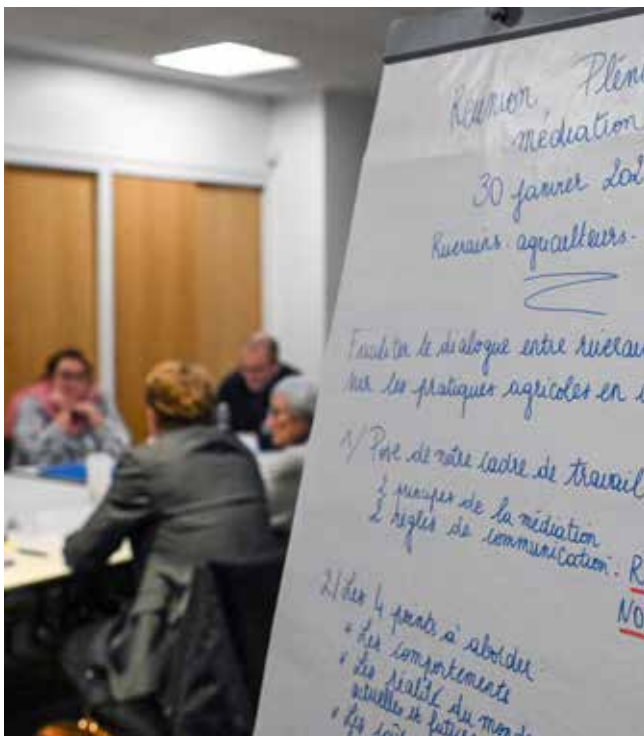 Réunion Pléni
médiation
30 janvier 202
Riverains. agriculteurs.
Faciliter le dialogue entre riverain
sur les pratiques agricoles en
1/ Pose de notre cadre de travail
de la médiation
règles de communication: R
NO
2/ Les 4 points à aborder
* Les comportements
* Les réalité du mond
actuelles et futur
* Les